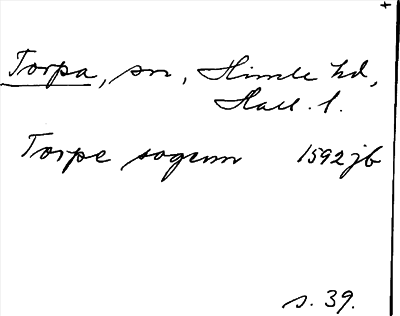 Torpa, sn, Himle hd,
Hall. l.
Torpe sogenn 1592 jb
s. 39.